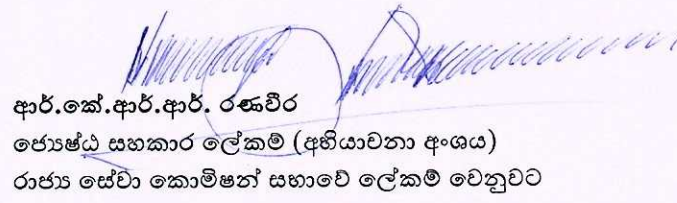 ආර්.කේ.ආර්.ආර්. රණවීර
ජ්‍යෙෂ්ඨ සහකාර ලේකම් (අභියාචනා අංශය)
රාජ්‍ය සේවා කොමිෂන් සභාවේ ලේකම් වෙනුවට